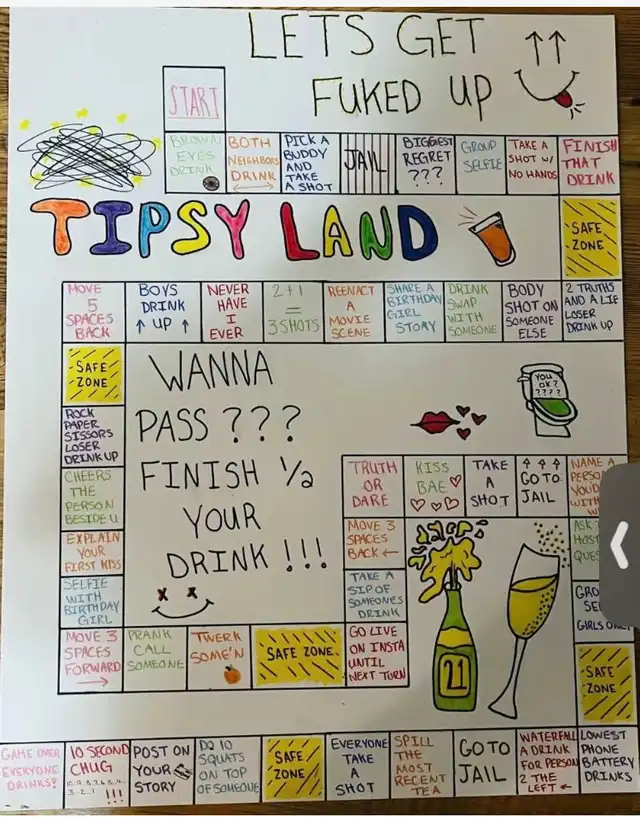 LETS GET
FUKED UP
START
BROWN
EYES
DRINK
BOTH
NEIGHBORS
DRINK
PICK A
BUDDY
AND
TAKE
A SHOT
JAIL
BIGGEST
REGRET
???
GROUP
SELFIE
TAKE A
SHOT W/
NO HANDS
FINISH
THAT
DRINK
TIPSY LAND
SAFE
ZONE
MOVE
5
SPACES
BACK
BOYS
DRINK
↑ UP ↑
NEVER
HAVE
I
EVER
2+1
=
3 SHOTS
REENACT
A
MOVIE
SCENE
SHARE A
BIRTHDAY
GIRL
STORY
DRINK
SWAP
WITH
SOMEONE
BODY
SHOT ON
SOMEONE
ELSE
2 TRUTHS
AND A LIE
LOSER
DRINK UP
SAFE
ZONE
WANNA
PASS ???
FINISH 1/2
YOUR
DRINK !!!
YOU
OK?
????
ROCK
PAPER
SISSORS
LOSER
DRINK UP
CHEERS
THE
PERSON
BESIDE U
EXPLAIN
YOUR
FIRST KISS
SELFIE
WITH
BIRTHDAY
GIRL
TRUTH
OR
DARE
KISS
BAE
TAKE
A
SHOT
GO TO
JAIL
NAME A
YOUD
WITH
MOVE 3
SPACES
BACK ←
ASK
HOST
TAKE A
SIP OF
SOMEONES
DRINK
GIRLS
21
MOVE 3
SPACES
FORWARD
→
PRANK
CALL
SOMEONE
TWERK
SOME'N
SAFE ZONE
GO LIVE
ON INSTA
UNTIL
NEXT TURN
SAFE
ZONE
GAME OVER
EVERYONE
DRINKS!
10 SECOND
CHUG
!!!
POST ON
YOUR
STORY
DO 10
SQUATS
ON TOP
OF SOMEONE
SAFE
ZONE
EVERYONE
TAKE
A
SHOT
SPILL
THE
MOST
RECENT
TEA
GO TO
JAIL
WATERFALL
A DRINK
FOR PERSON
2 THE
LEFT ←
LOWEST
PHONE
BATTERY
DRINKS